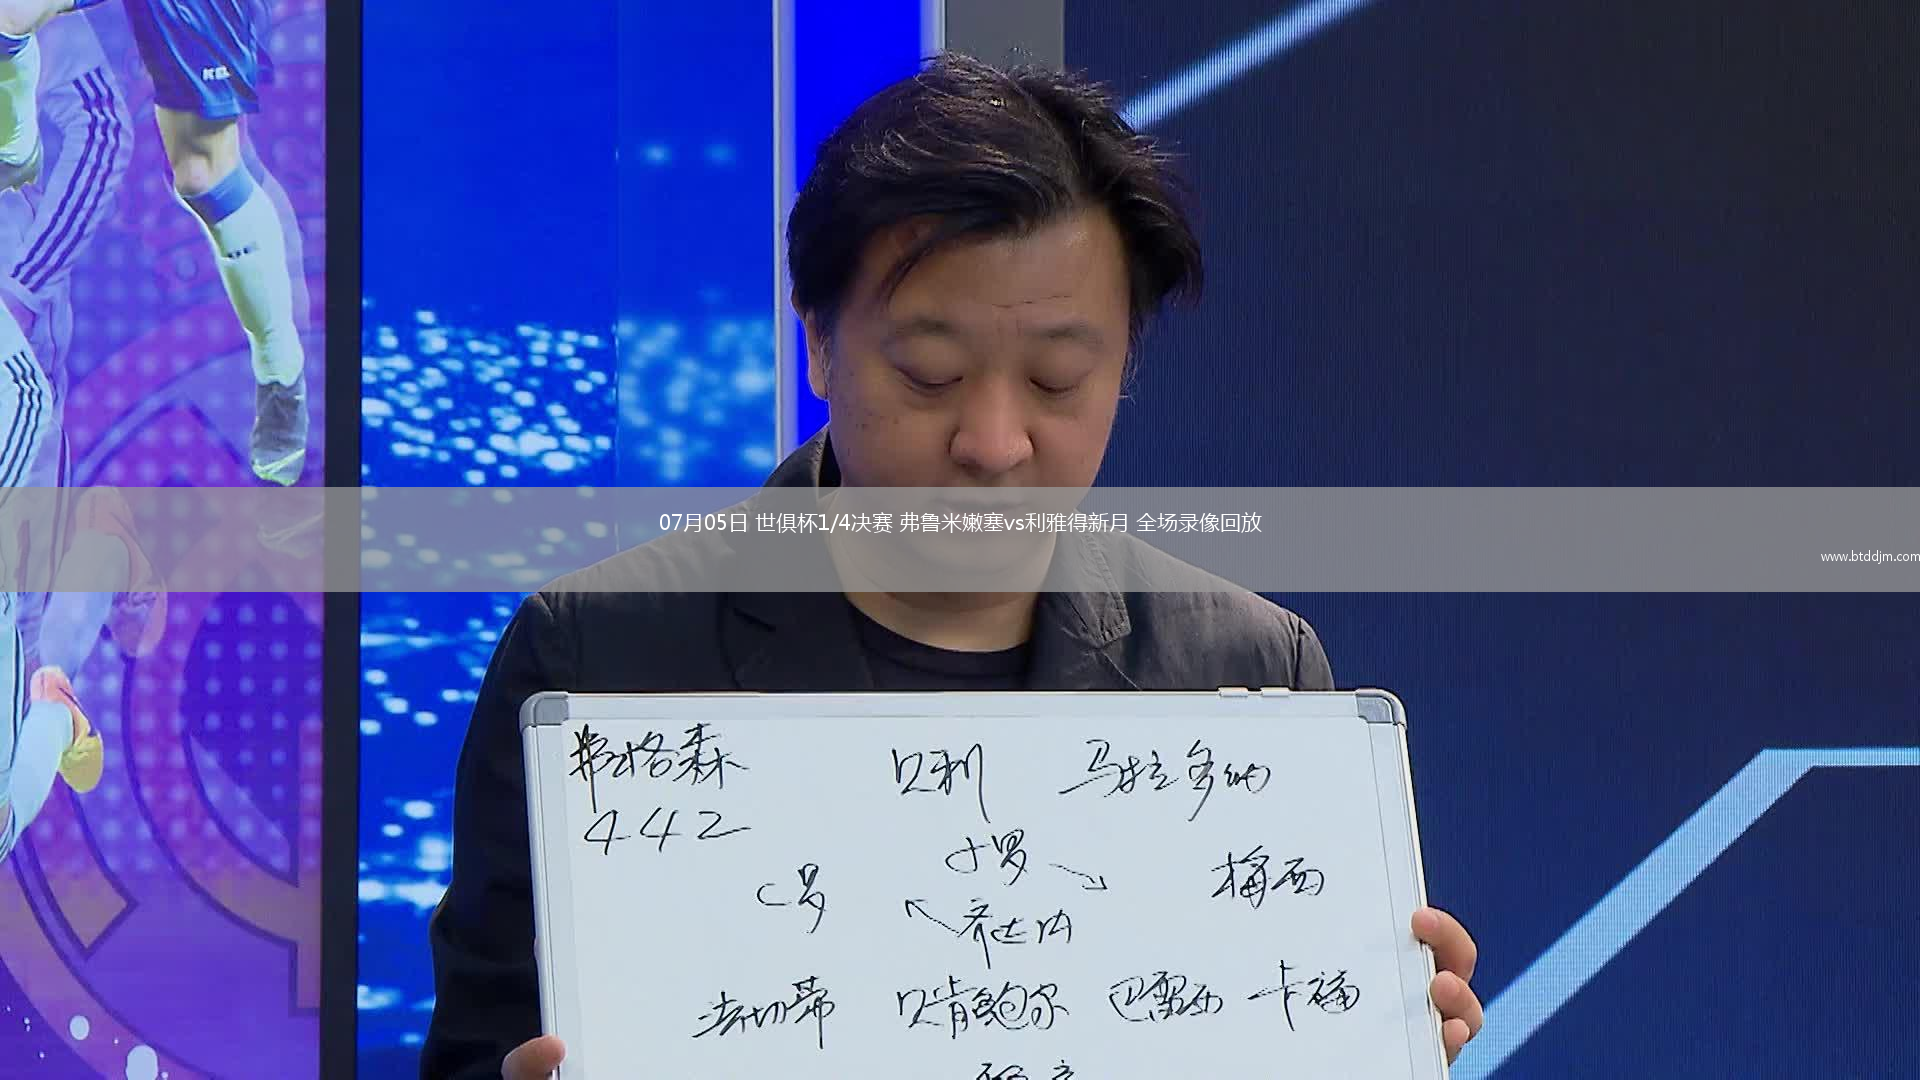 KEL
07月05日 世俱杯1/4决赛 弗鲁米嫩塞vs利雅得新月 全场录像回放
www.btddjm.com
弗格森 贝利 马拉多纳
442
小罗
C罗 梅西
齐达内
法切蒂 贝肯鲍尔 巴雷西 卡福